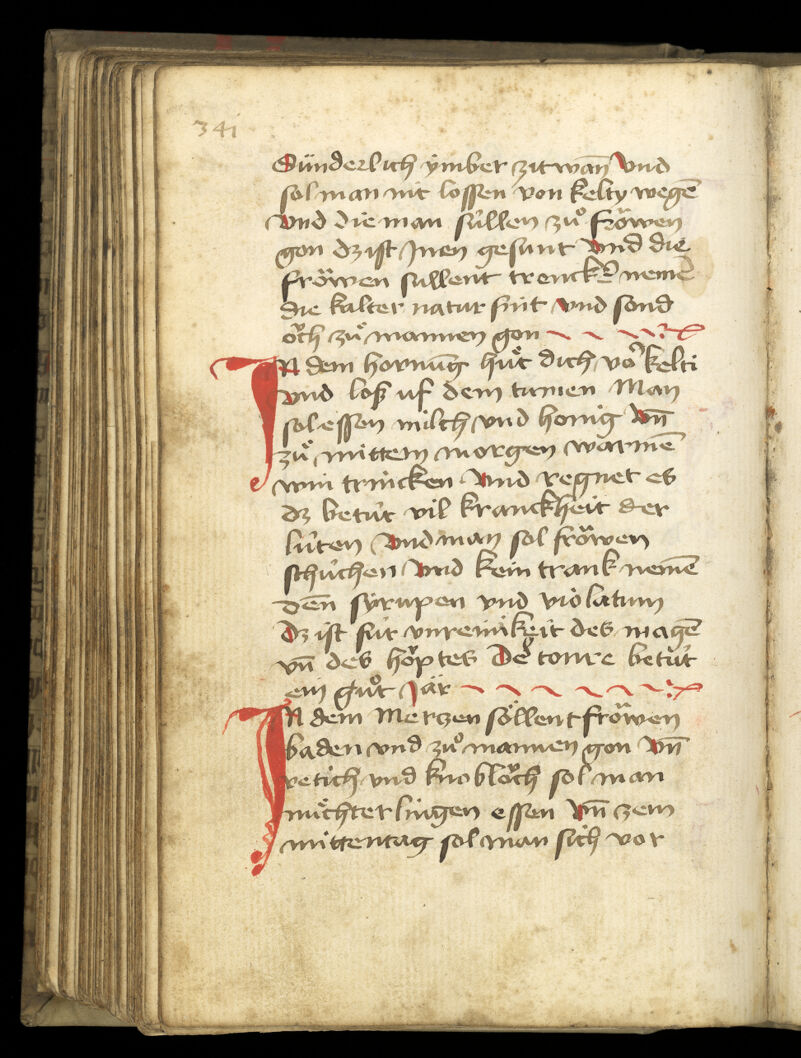 341
Sünderlich ÿmber zitwan̄ Vnd
sol man nit lossen von kelty wegē
Vnd die man süllen zuͦ fröwen
gon dz ist Jnen gesunt Vnd die
fröwen sullent trenck nemē
die kalter natur sint vnd sond
och zuͦ mannen gon
JN dem hornūg huͤt dich vō kelti
vnd loß uf dem tumen Man
sol essen milch vnd honig Vn̄
zuͦ mittem morgen warmē
win trincken Vnd regnet es
dz betüt vil kranckheit der
lüten Vnd man sol fröwen
schüchen Vnd kein trank nemē
den̄ syrupen vnd violatum
Dz ist für vnreinikeit des magē
vn̄ des höptes Der tonre betüt
ein guͦt Jär
JN dem Mertzen söllent fröwen
baden vnd zuͦ mannen gon Vn̄
retich vnd knobloch sol man
nuͤchterlingen essen Vn̄ zem
mittentag sol man sich vor